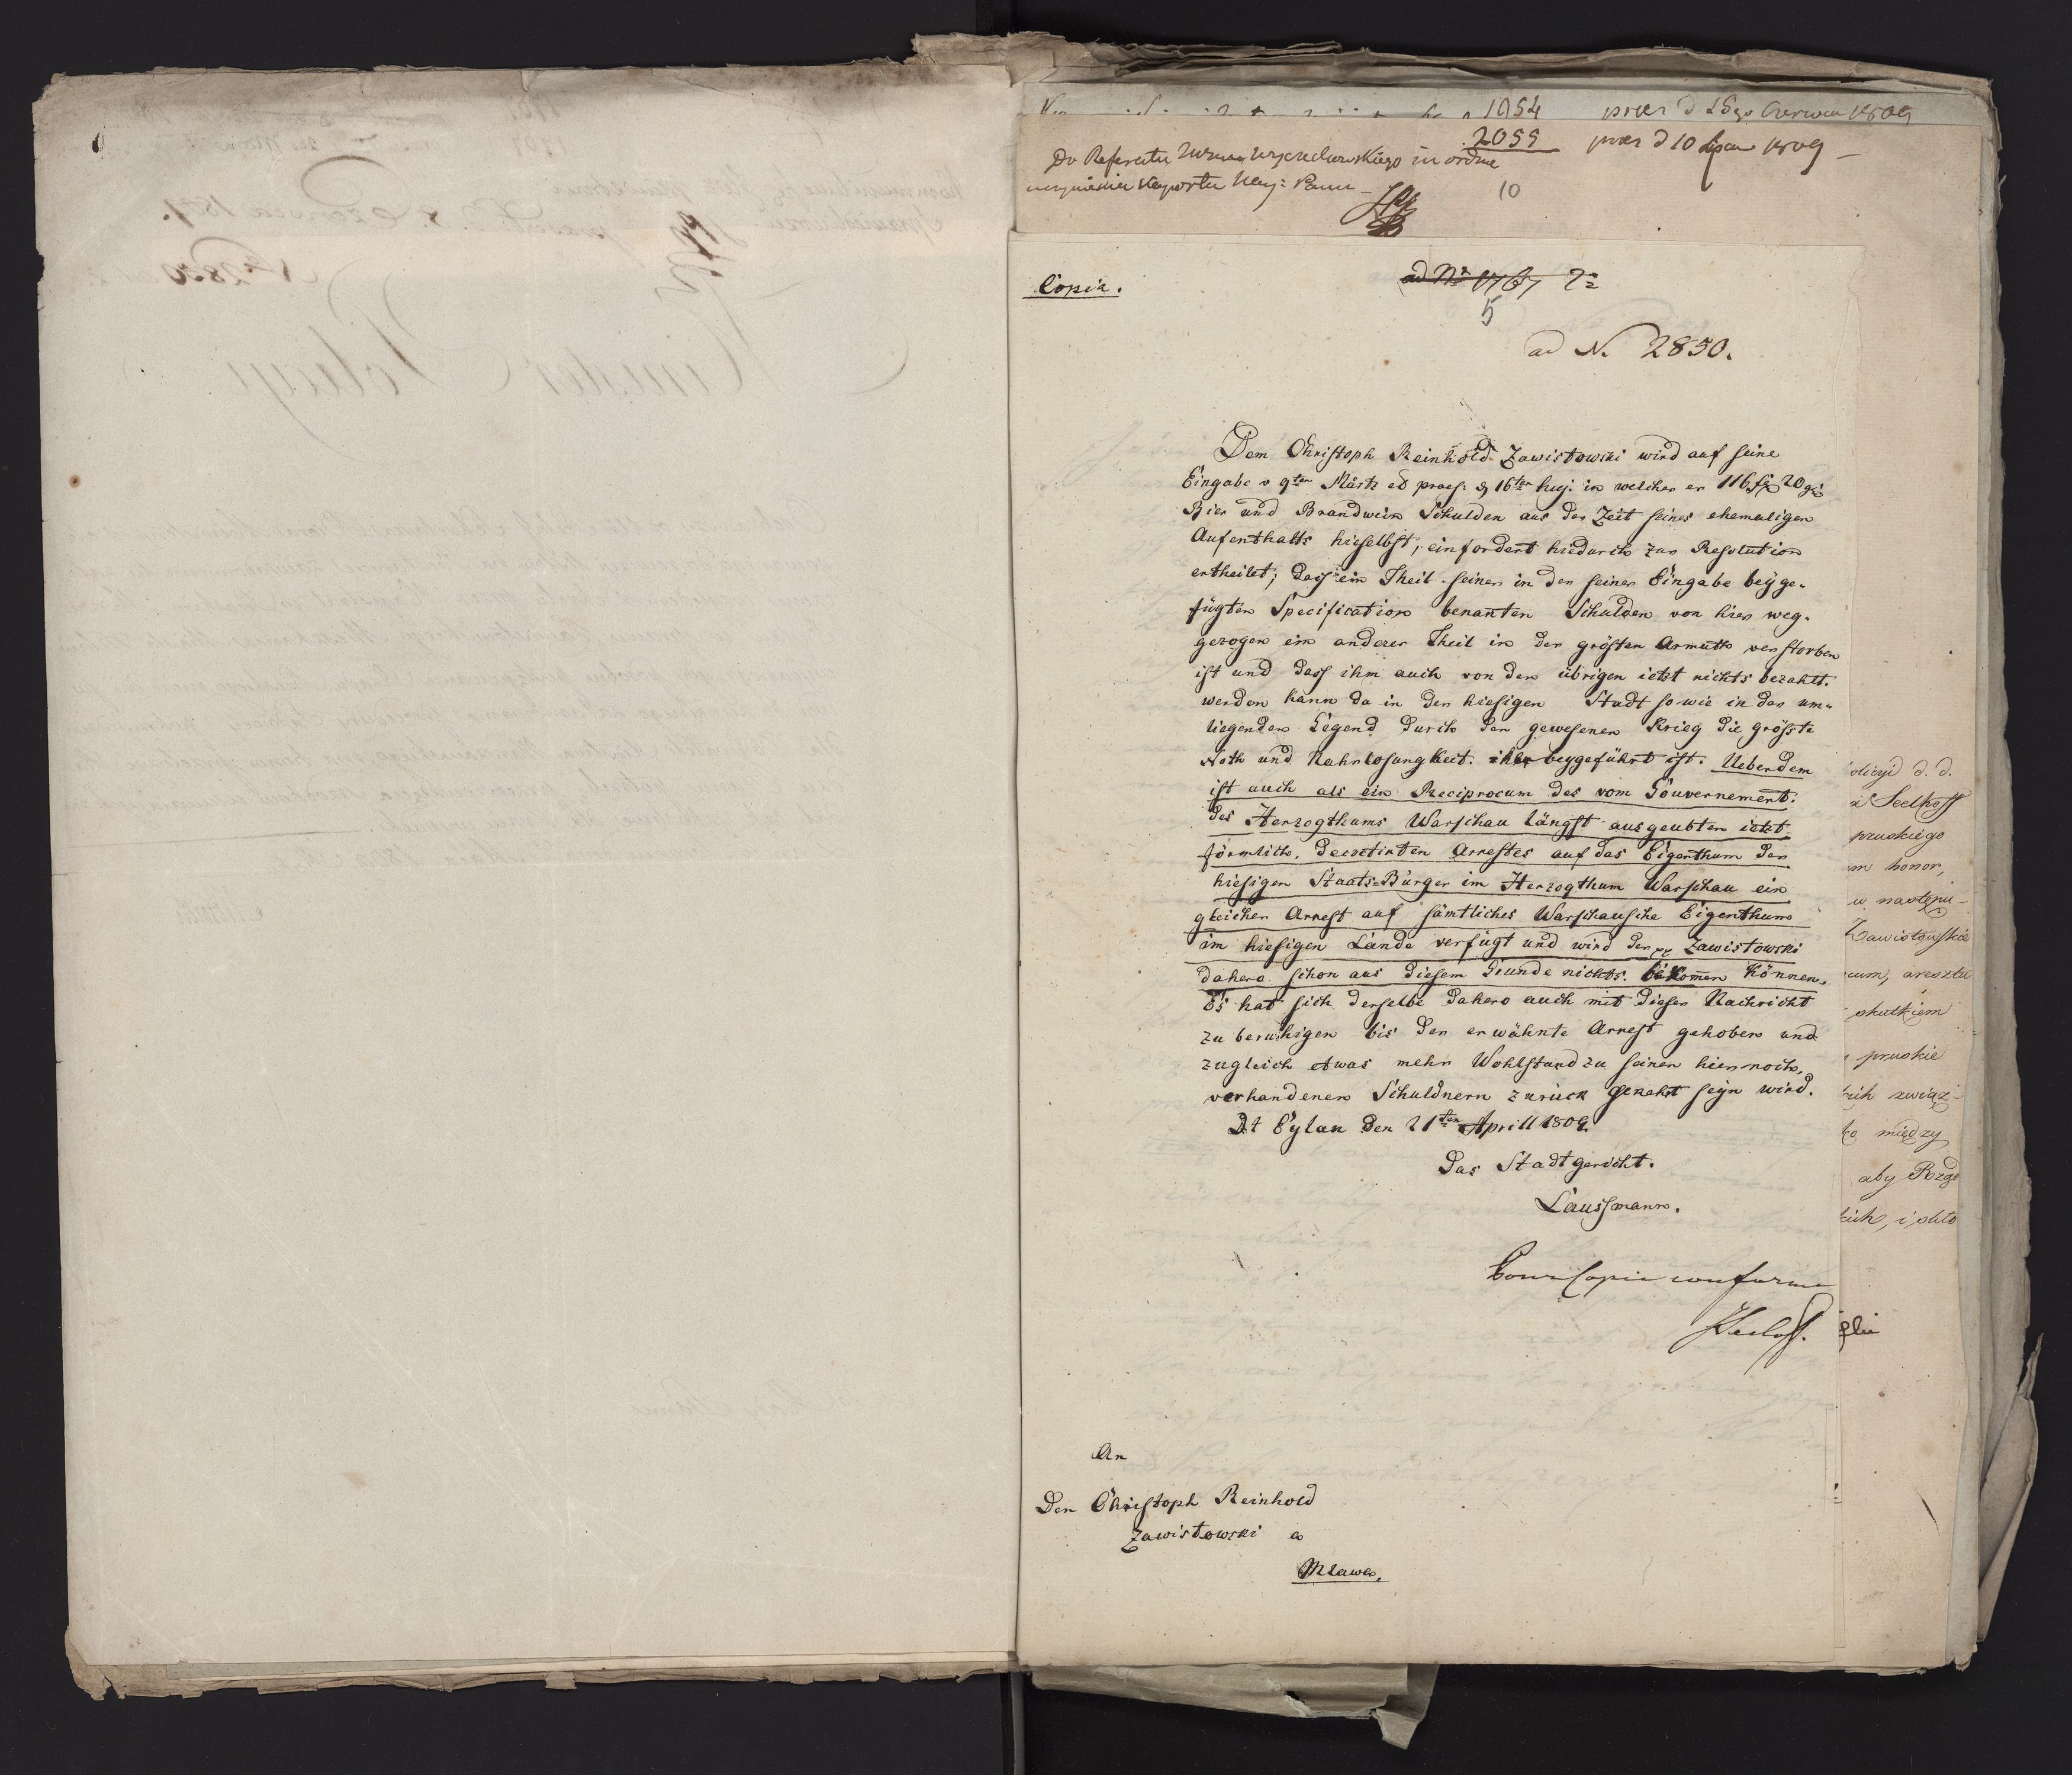 1054 praes d 26go Czerwca 1809
2059 praes d 10 lipca 1809
Do Referatu in ordine
10
Copia.
ad Nr 1767
5
ad N. 2850.
Dem Christoph Reinhold Zawistowski wird auf seine
Eingabe v 9ten Märtz et praes: d 16ten huj. in welcher er 116 20 gr
Bier und Brandwein Schulden aus der Zeit seines ehemaligen
Aufenthalts hieselbst, einfordert hiedurch zur Resolution
ertheilet; dass ein Theil seiner in der seiner Eingabe beyge-
fügten Specification benanten Schulden von hier weg-
gezogen ein anderer Theil in der grösten Armuth verstorben
ist und dass ihm auch von den übrigen ietzt nichts bezahlt.
werden kann da in der hiesigen Stadt so wie in der um-
liegenden Gegend durch den gewesenen Krieg die grösste
Noth und Nahrlosungkeit. beygeführt ist. Ueberdem
ist auch als ein Reciprocum des vom Gouvernement.
des Herzogthums Warschau längst ausgeubten ietzt
förmlich. decretirten Arrestes auf das Eigenthum der
hiesigen Staats-Bürger im Herzogthum Warschau ein
gleicher Arrest auf sämtliches Warschausche Eigenthum
im hiesigen Lande verfügt und wird der pp Zawistowski
dahero schon aus diesem Grunde nichts. bekomen können.
Es hat sich derselbe dahero auch mit dieser Nachricht
zu beruhigen bis der erwähnte Arrest gehoben und
zugleich etwas mehr Wohlstand zu seinen hier noch,
verhandenen Schuldnern zurück gekehrt seyn wird.
Dt Eylau den 21ten Aprill 1809.
Das Stadtgericht.
Laussmann.
Pour Copie conforme
An
Den Christoph Reinhold
Zawistowski
Mlawa.
olicyi d. d.
Seelhoff
pruskiego
m honor,
w nastęnu-
Zawistowskie
cum, aresztu
skutkiem
pruskie
kich związ-
ko między
aby Rząd
kich, i oto